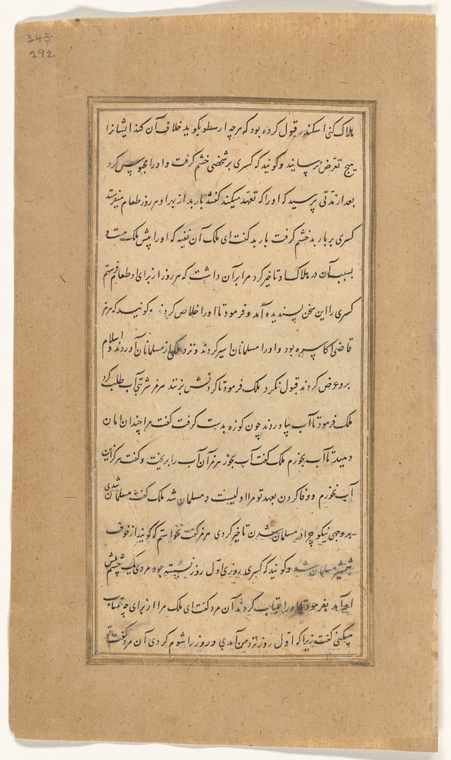 343
292
هلاک کنی اسکندر قبول کرده بود که هرچه ارسطو بکوید خلاف آن کند ایشانرا
هیچ تعرض نرسانید و کویند که کسری بر شخصی خشم کرفت و او را محبوس کرد
بعد از مدتی پرسید که او را که تعهد میکند کفتند باربد از بهر او هر روز طعام میفرستد
کسری بر باربد خشم کرفت باربد کفت ای ملک آن نفیه که او را پیش ملک
بسبب آن در هلاک او تاخیر کرد مرا بر آن داشت که هر روز از برای او طعام فرستم
کسری را این سخن پسندیده آمد و فرمود تا او را خلاص کردند و کویند که هرمز
قاضی اکاسره بود و او را مسلمانان اسیر کردند و نزد ملکی از مسلمانان آوردند و اسلام
برو عرض کردند قبول نکرد ملک فرمود تا کردنش بزنند هرمز شربتی آب طلب کرد
ملک فرمود تا آب بیاوردند چون کوزه بدست کرفت کفت مرا چندان امان
دهید تا آب بخورم ملک کفت آب بخور هرمز آن آب را بریخت و کفت هرکز این
آب نخورم و وفا کردن بعهد تو مرا اولیست و مسلمان شد ملک کفت مسلمان شدی
بر وجهی نیکو چرا در مسلمان شدن تاخیر کردی هرمز کفت نخواستم که کویند از خوف
شمشیر مسلمان شد و کویند که کسری روزی اول روز نشسته بود مردی یک چشم پیش
او آمد بفرمود تا او را عتاب کردند آن مرد کفت ای ملک مرا از برای چه عتاب
میکنی کفت زیرا که اول روز نزد من آمدی و روز را شوم کردی آن مرد کفت